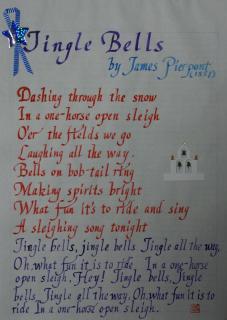 Jingle Bells
by James Pierpont
Dashing through the snow
In a one-horse open sleigh
O'er the fields we go
Laughing all the way.
Bells on bob-tail ring
Making spirits bright
What fun it's to ride and sing
A sleighing song tonight
Jingle bells, jingle bells Jingle all the way,
Oh what fun it is to ride In a one-horse
open sleigh, Hey! Jingle bells, Jingle
bells Jingle all the way, Oh, what fun it is to
ride In a one-horse open sleigh.